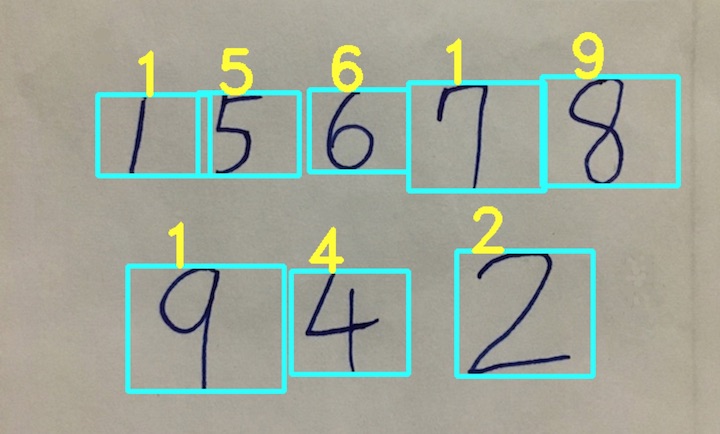 1 5 6 1 9
1 5 6 7 8
1 4 2
9 4 2